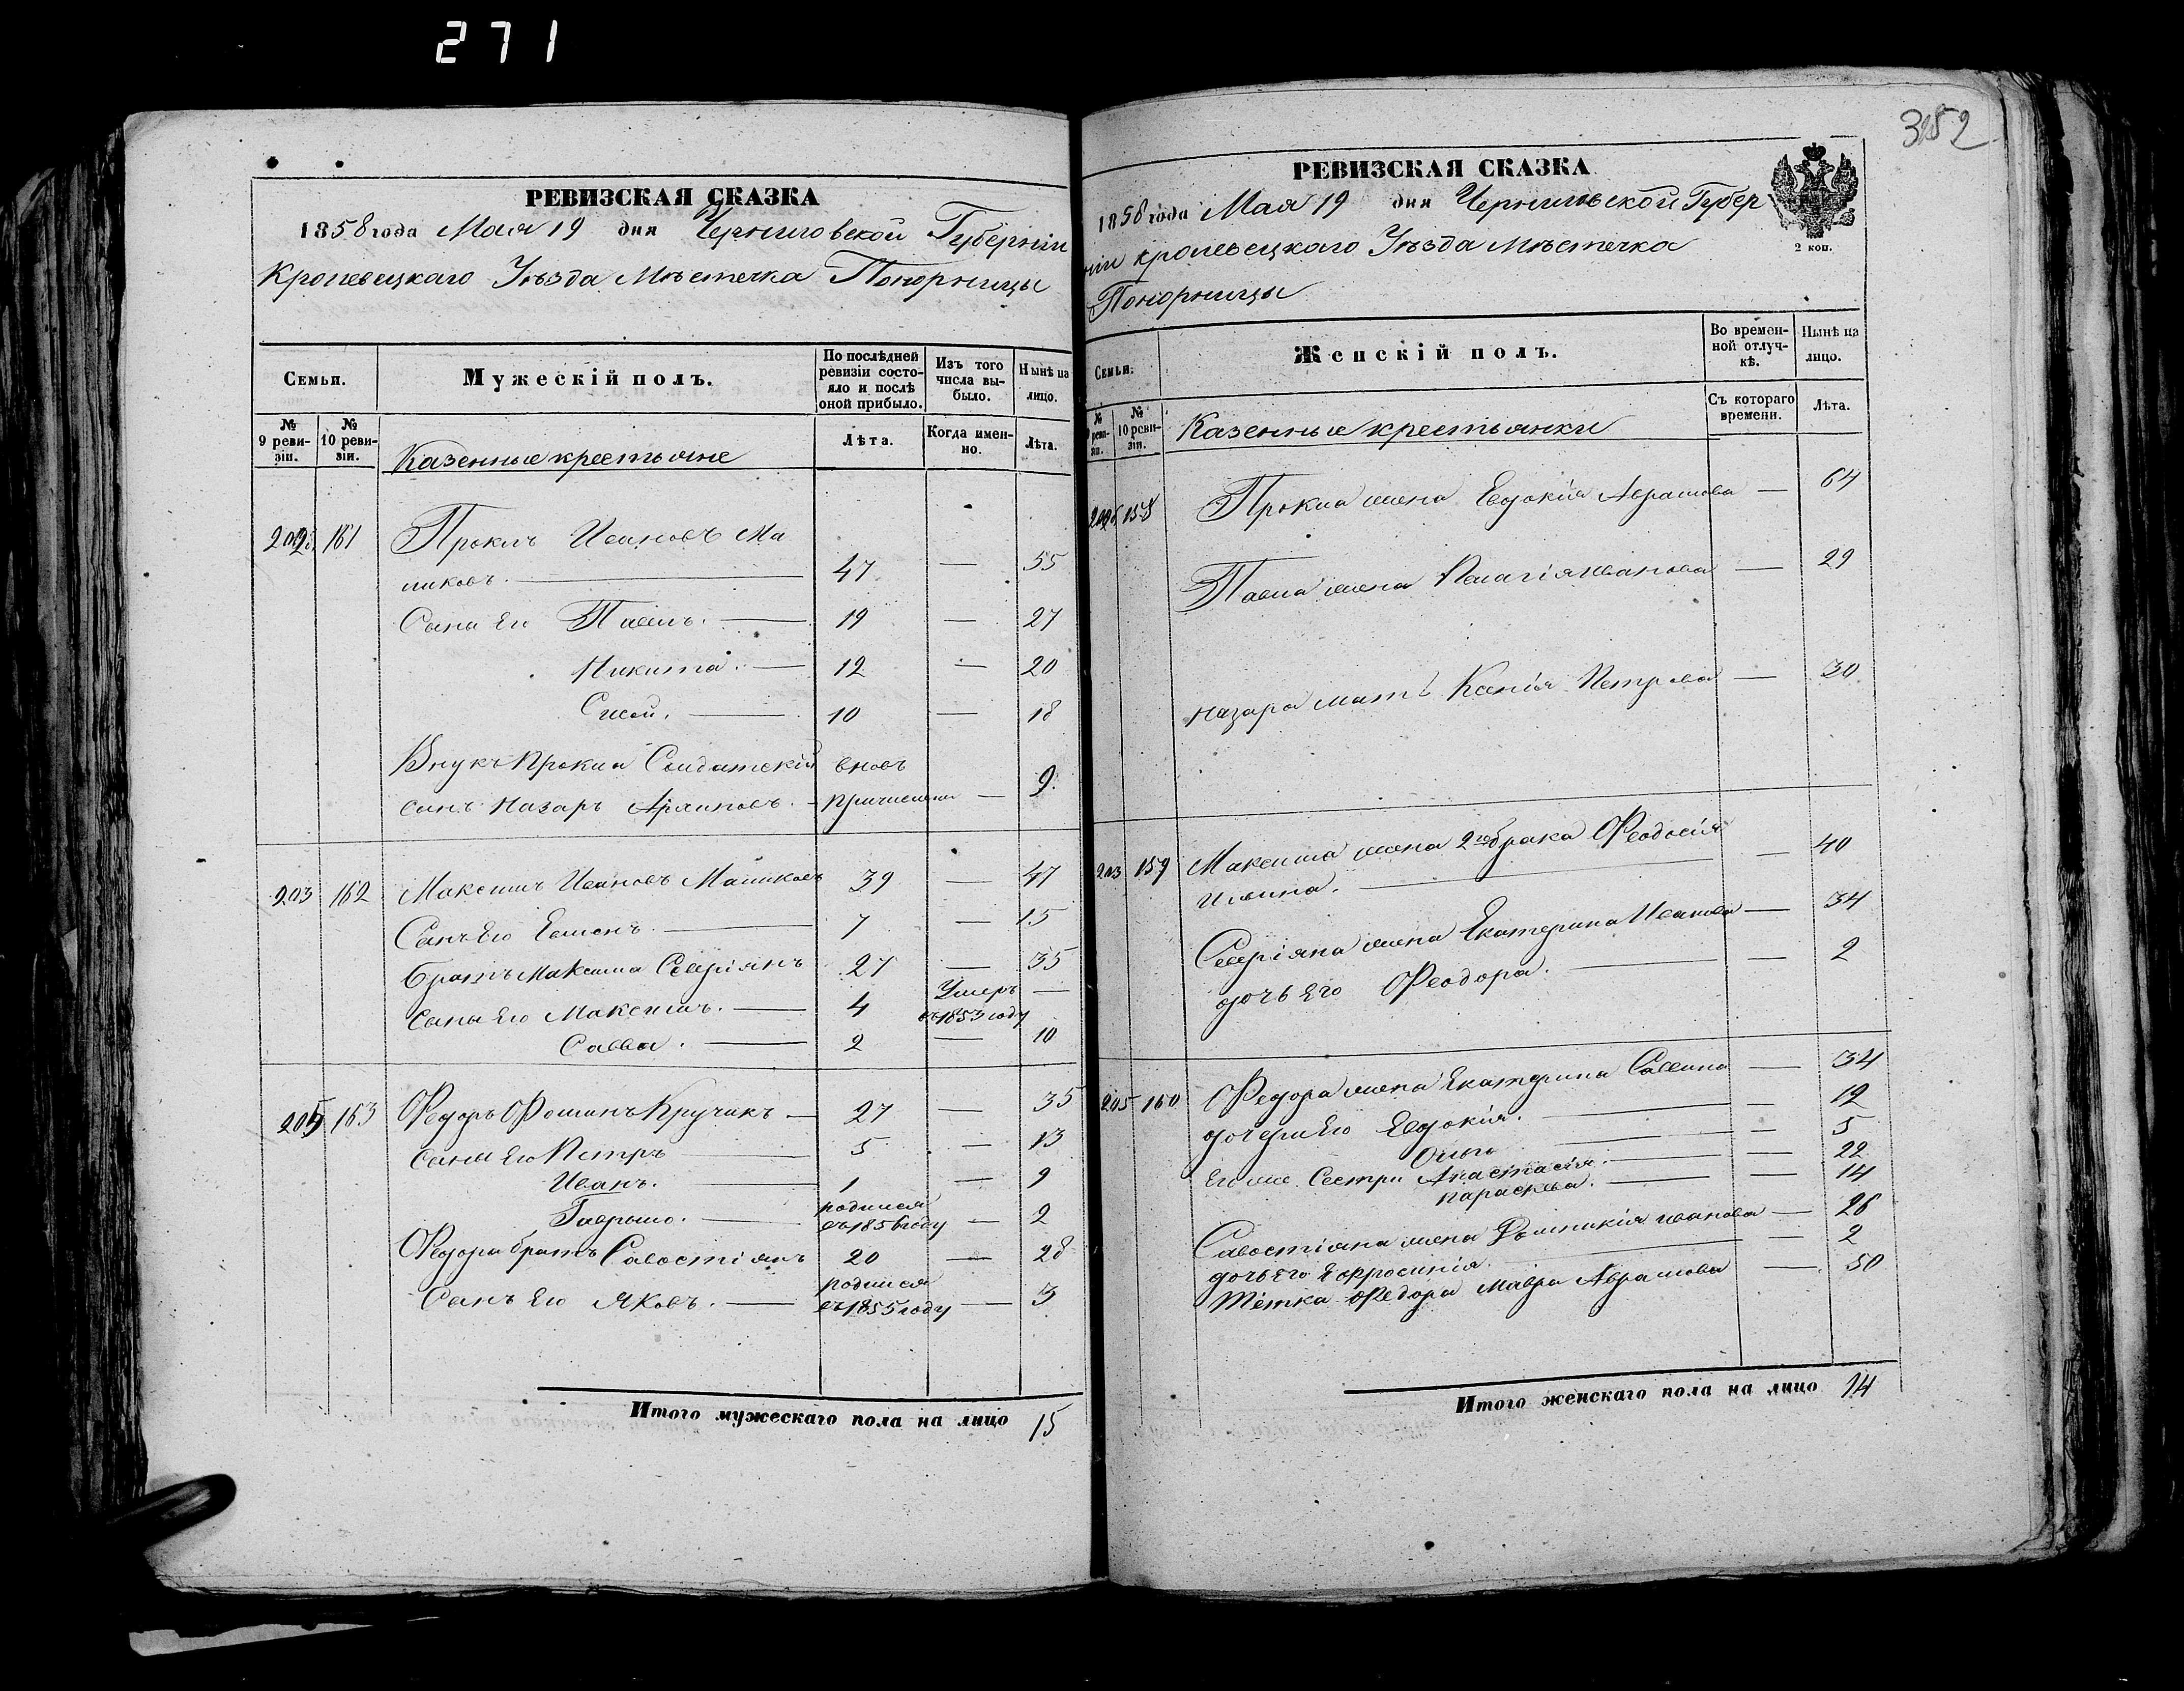 271
РЕВИЗСКАЯ СКАЗКА
1858 года Мая 19 дня Черниговской Губерніи
Кролевецкаго Уѣзда Мѣстечка Понорницы
Семьи.
Мужескій полъ.
По послѣдней ревизіи состояло и послѣ оной прибыло.
Изъ того числа выбыло.
Нынѣ на лицо.
№ 9 ревизіи.
№ 10 ревизіи.
Казенные крестьяне
Лѣта.
Когда именно.
Лѣта.
161 Прокпъ Ивановъ Ма
ликовъ. — 47 — 55
Сыны Его Павлъ. — 19 — 27
Никита. — 12 — 20
Сисой. — 10 — 18
Внукъ Прокпа Солдатскій вновь
сынъ Назаръ причисленъ — 9.
203 162 Максимъ Ивановъ Маликовъ 39 — 47
Сынъ Его — 7 — 15
братъ Максима Северіянъ 27 — 35
Сыны Его Максимъ. — 4 Умеръ въ 1853 году —
Савва. — 2 — 10
205 163 Федоръ Фоминъ Кручакъ — 27 — 35
Сыны Его Петръ — 5 — 13
Иванъ. — 1 — 9
Гаврыло. — родился въ 1856 году — 2
Федора братъ Савостіянъ 20 — 28
Сынъ Его Яковъ. — родился въ 1855 году — 3
Итого мужескаго пола на лицо 15
352
РЕВИЗСКАЯ СКАЗКА
1858 года Мая 19 дня Черниговской Губер
ніи Кролевецкаго Уѣзда Мѣстечка
Понорницы
2 коп.
Семьи.
Женскій полъ.
Во временной отлучкѣ.
Нынѣ на лицо.
№ 9 ревизіи.
№ 10 ревизіи.
Казенные крестьянки
Съ котораго времени.
Лѣта.
158 жена Евдокія Аврамова — 64
Павла жена Пелагія Иванова — 29
Назара мать Ксенія Петрова — 30
203 159 Максима жена 2го брака Феодосія
Ильина. — — 40
Северіяна жена Екатерина Иванова — 34
дочь Его Феодора. — — 2
205 160 Федора жена Екатерина Саввина — 34
дочери Его Евдокія. — — 12
Ольга — — 5
Его же Сестры Анастасія. — — 22
Параскева. — — 14
Савостіяна жена Иванова — 26
дочь Его Ефросинія. — — 2
Тётка Федора Мавра Аврамова — 50
Итого женскаго пола на лицо 14